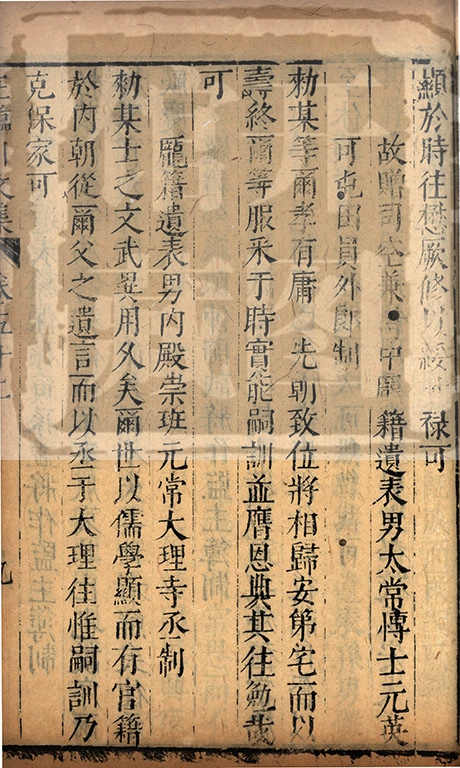 顯於時往懋厥修以綏 祿可
故贈司空兼 中龐籍遺表男太常博士元英
可屯田員外郎制
勑某等爾孝有庸 先朝致位將相歸安第宅而以
壽終爾等服采于時實能嗣訓並膺恩典其往勉哉
可
龐籍遺表男內殿崇班元常大理寺丞制
勑某士之文武異用久矣爾世以儒學顯而有官籍
於內朝從爾父之遺言而以丞于大理往惟嗣訓乃
克保家可